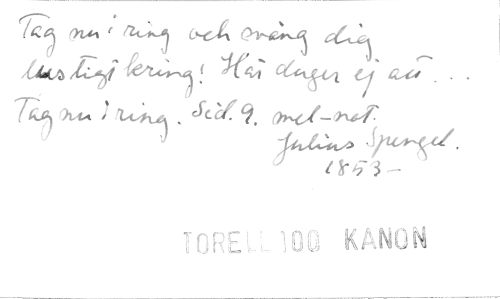 Tag nu i ring och sväng dig
lustigt kring! Här duger ej att...
Tag nu i ring. Sid. 9. mel-not.
Julius Spengel.
1853-
TORELL 100 KANON